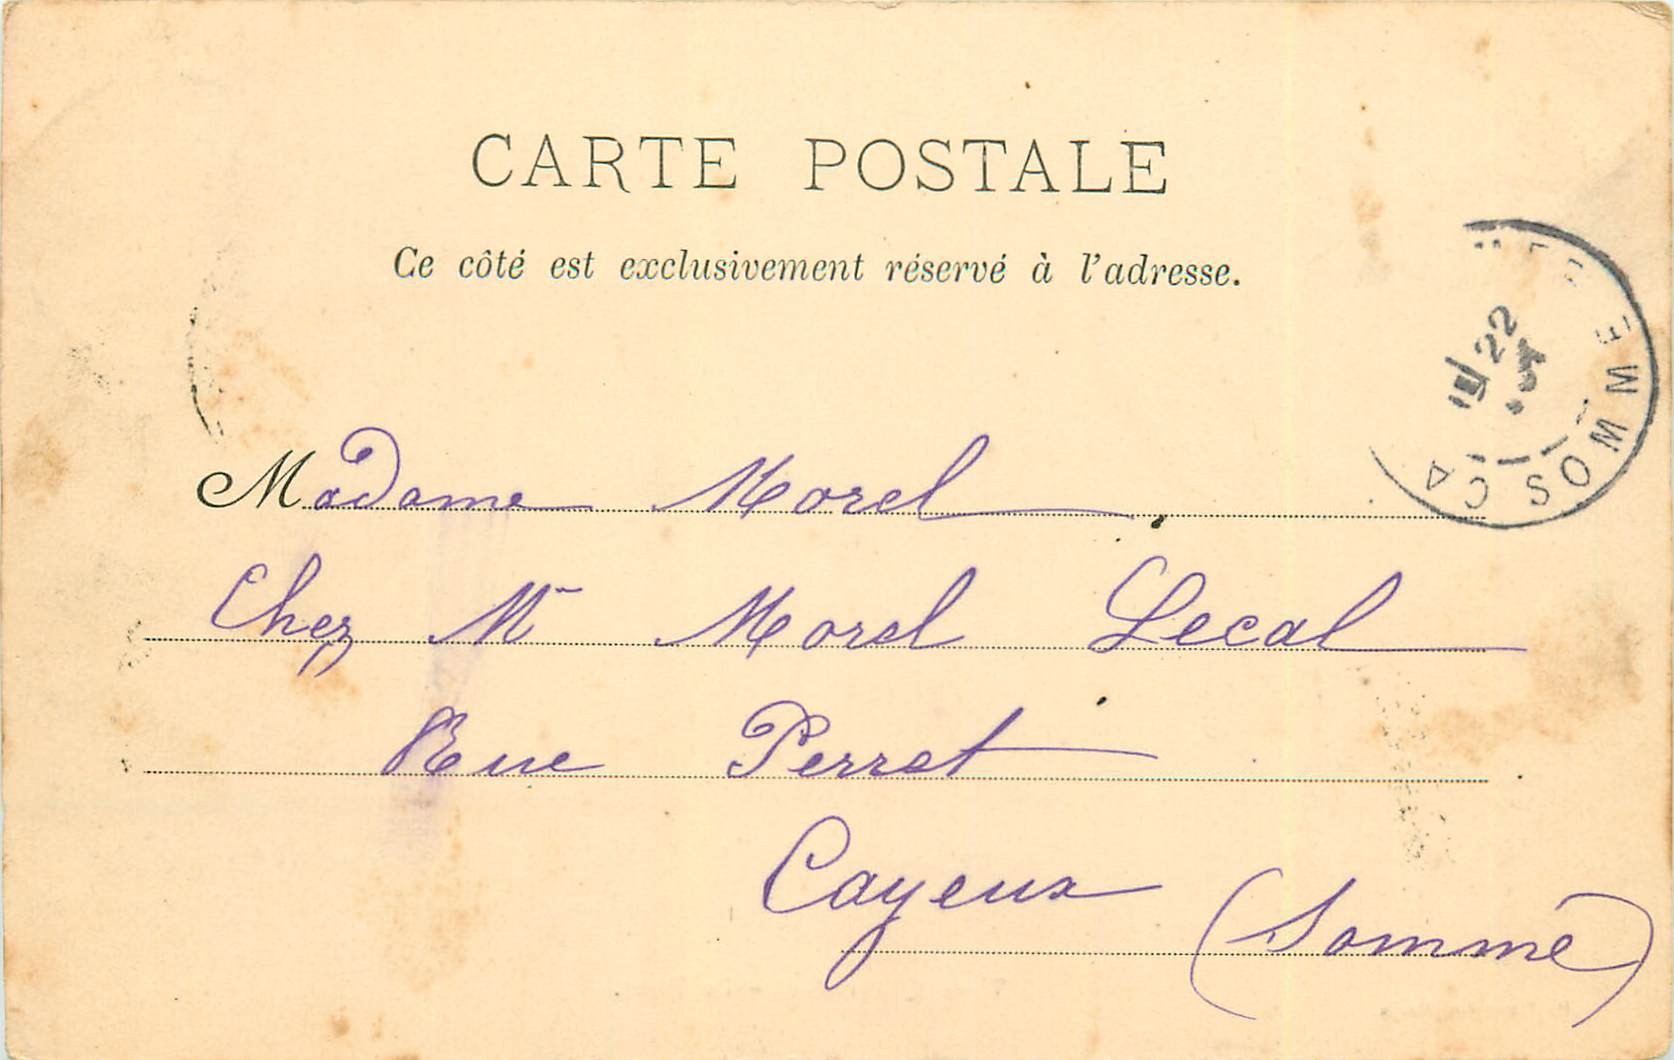 CARTE POSTALE
Ce côté est exclusivement réservé à l'adresse.
22
SOMME
CA
Madame Morel
Chez Mr Morel Lecal
Rue Perret
Cayeux (Somme)